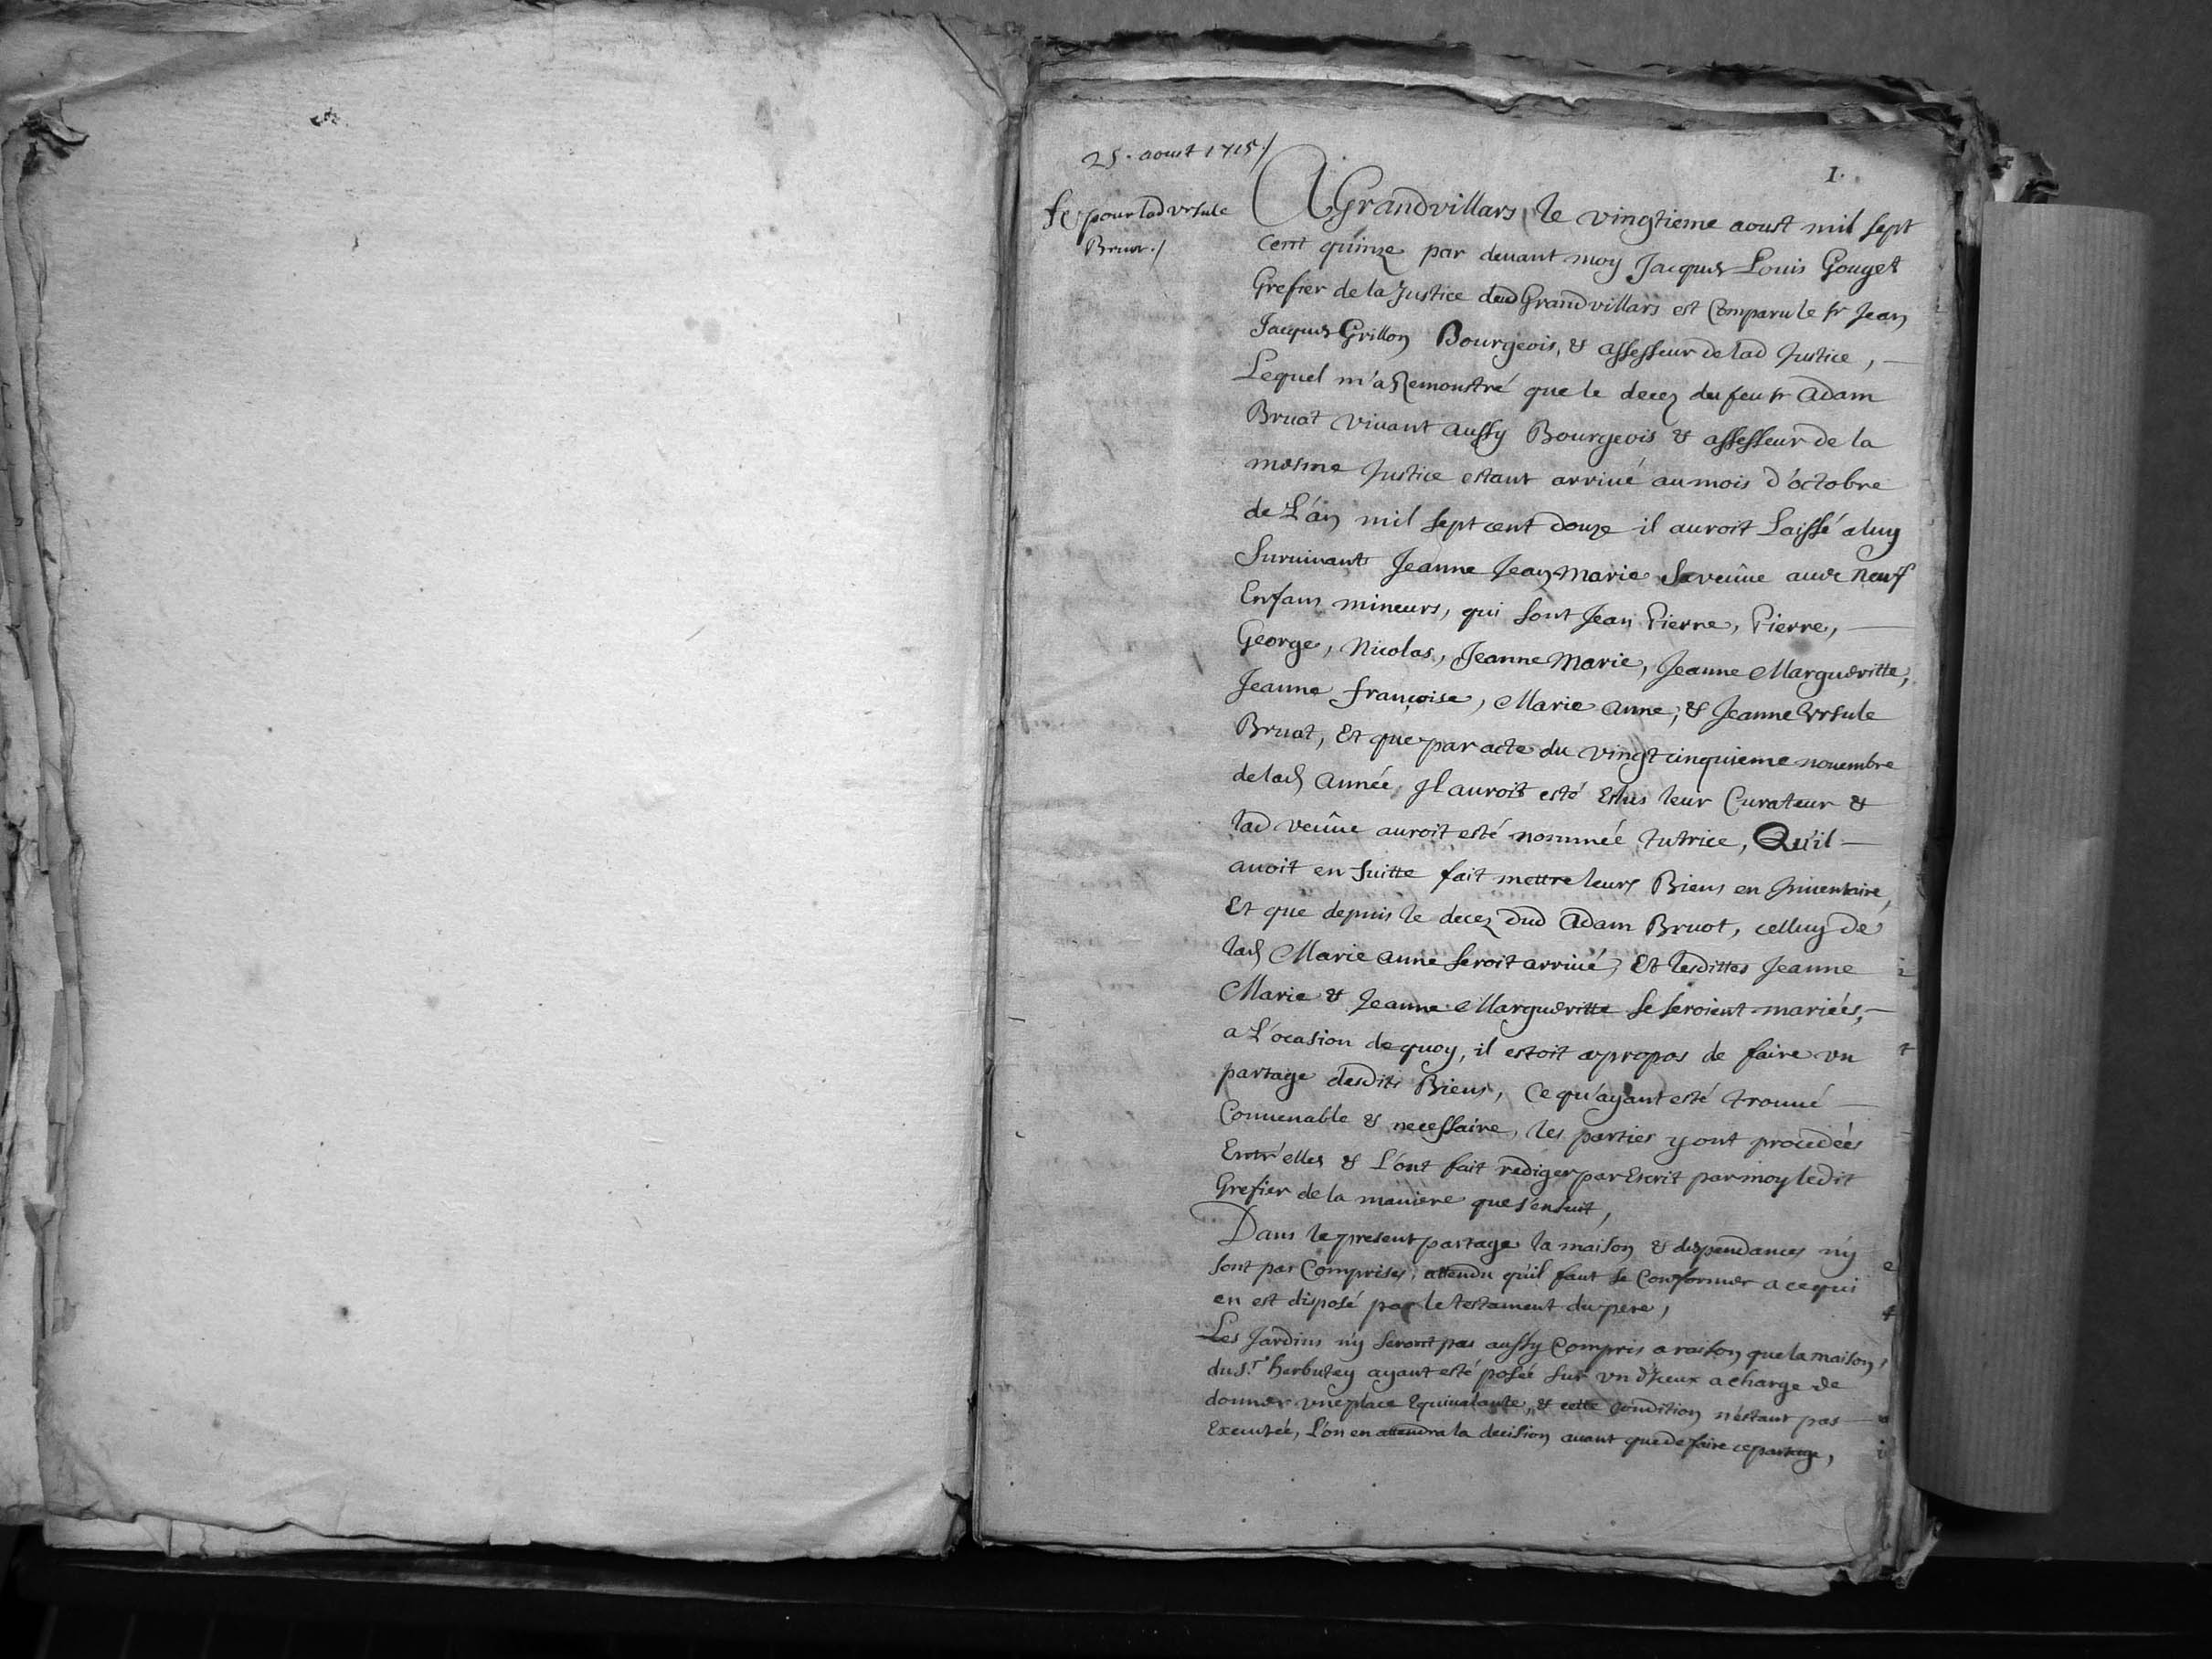 25. aoust 1715./
1.
pour lad Vrsule
Bruat./
A Grandvillars, le vingtieme aoust mil sept
cent quinze par deuant moy Jacques Louis Gouget
Grefier de la Justice dud Grandvillars est Comparu le sr Jean
Jacques Grillon Bourgeois, & assesseur de lad Justice,
Lequel m'a Remonstré que le decez du feu sr Adam
Bruat viuant aussy Bourgeois & assesseur de la
mesme Justice estant arriué au mois d'octobre
de L'an mil sept cent douze il auroit Laissé a luy
Suruiuants Jeanne Jean marie sa veüue auec neuf
Enfans mineurs, qui sont Jean Pierre, Pierre,
George, Nicolas, Jeanne Marie, Jeanne Margueritte,
Jeanne françoise, Marie Anne, & Jeanne Vrsule
Bruat, Et que par acte du vingt cinquieme nouembre
de lad Année, Jl auroit esté Eslus leur Curateur &
lad veüue auroit esté nommée tutrice, Qu'il
auoit en suitte fait mettre leurs Biens en Jnuentaire,
Et que depuis le decez dud Adam Bruot, celluy de
lad Marie Anne seroit arriué, Et lesdittes Jeanne
Marie & Jeanne Margueritte se seroient mariées,
a L'ocasion de quoy, il estoit apropos de faire vn
partage desdits Biens, Ce qu'ayant esté trouué
Conuenable & necessaire, les parties y ont procedées
Entr'elles & L'ont fait rediger par Escrit par moy ledit
Grefier de la maniere que s'ensuit,
Dans le present partage la maison & despendances n'y
sont pas Comprises, attendu qu'il faut se Conformer a ce qui
en est disposé par le testament du pere,
Les Jardins n'y seront pas aussy Compris a raison que la maison
du S.r herbutey ayant esté posée sur vn d'Jceux a charge de
donner vne place Equiualante, & cette Condition n'estant pas
Executée, L'on en attendra la decision auant que de faire ce partage,